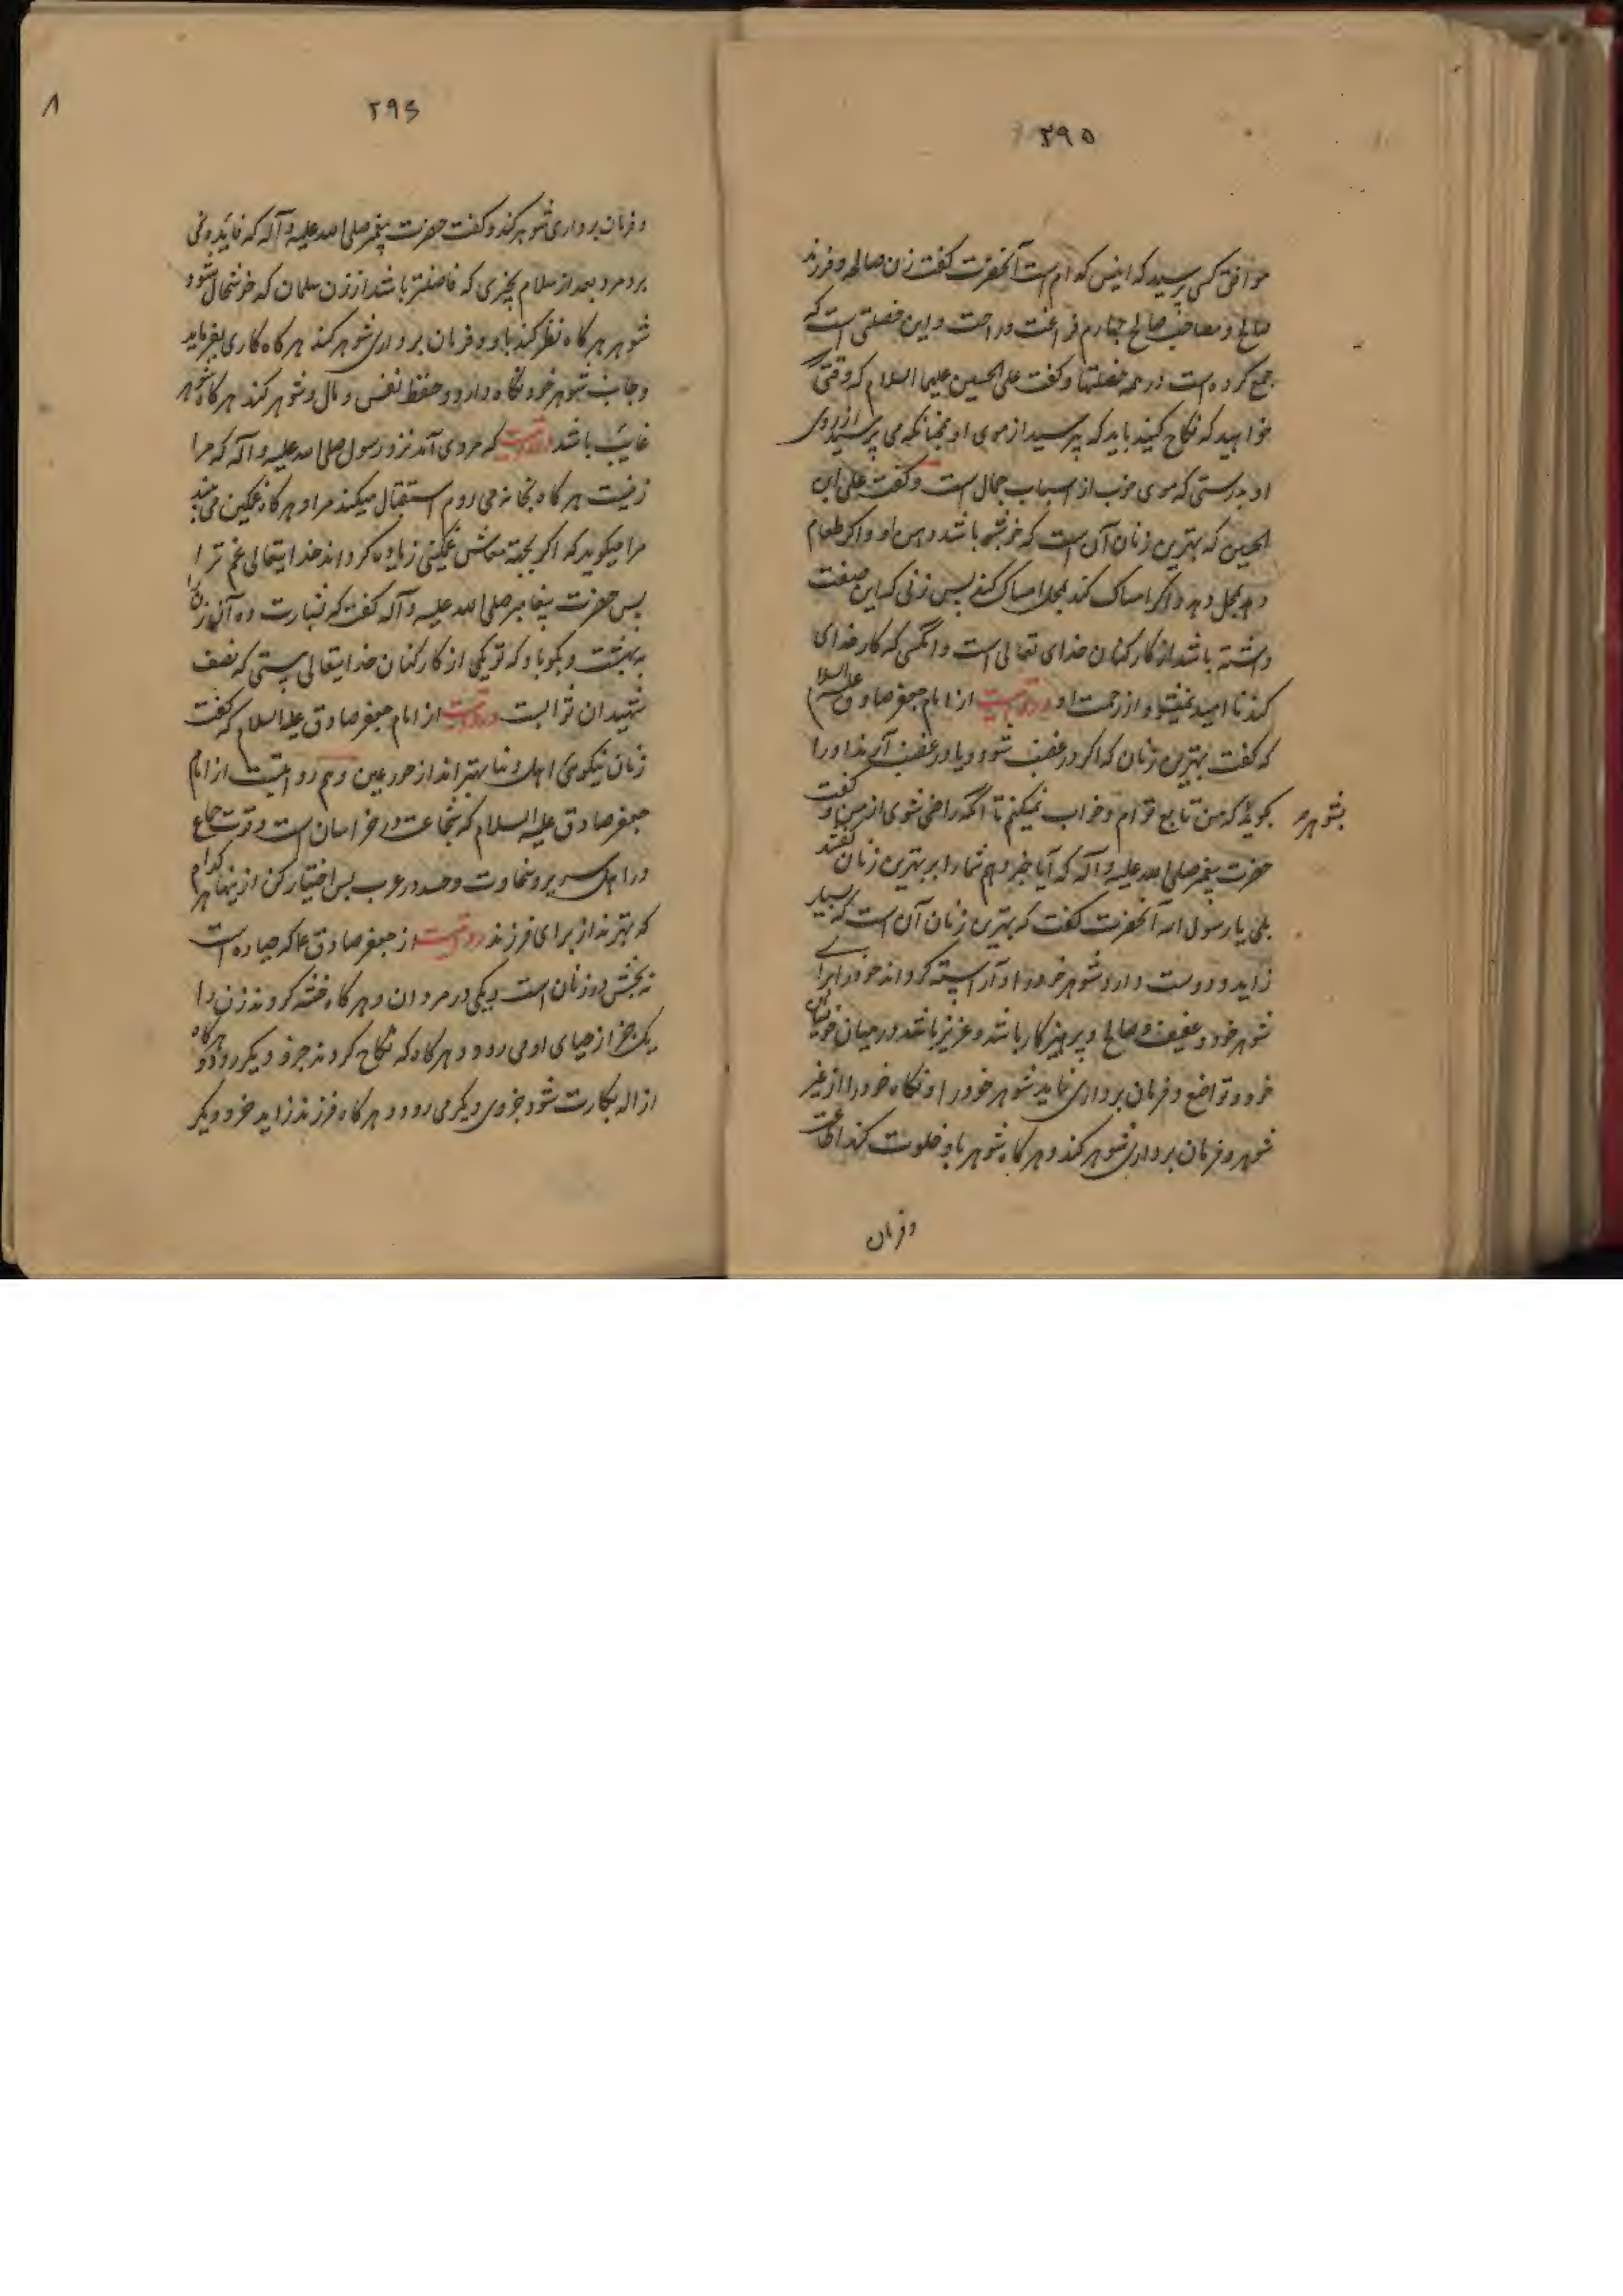 ۲۹۵
موافق کسی پرسید که انیس کدام است آنحضرت گفت زن صالحه و فرزند
صالح و مصاحب صالح چهارم فراغت و راحت و این خصلتی است که
جمع کرده است در همه خصلتها و گفت علی الحسین علیهما السلام که وقتی که
خواهید که نکاح کنید باید که پرسید از موی او همچنانکه می پرسید از روی
او بدرستی که موی خوب از اسباب جمال است و گفت علی ابن
الحسین که بهترین زنان آن است که خوشبو باشد دهن او و اگر طعام
دهد بمحل دهد و اگر امساک کند بمحل امساک کند پس زنی که این صفت
داشته باشد از کارکنان خدای تعالی است و آنکسی که کار خدای
کند نا امید نمیشود از رحمت او و روایتست از امام جعفر صادق علیه السلام
که گفت بهترین زنان که اگر در غضب شود و یا در غضب آرند او را
بگوید که من تابع توام و خواب نمیکنم تا آنکه راضی شوی از من و گفت
بشوهر
حضرت پیغمبر صلی الله علیه و آله که آیا خبر دهم شما را بر بهترین زنان گفتند
بلی یا رسول الله آنحضرت گفت که بهترین زنان آن است که بسیار
زاید و دوست دارد شوهر خود را و آراسته گرداند خود را برای
شوهر خود و عفیف و صالح و پرهیزکار باشد و عزیز باشد در میان خویشان
خود و تواضع و فرمان برداری نماید شوهر خود را و نگاه خود را از غیر
شوهر و فرمان برداری شوهر کند و هرگاه شوهر با او خلوت کند اطاعت
و فرمان
۸
۲۹۶
و فرمان برداری شوهر کند و گفت حضرت پیغمبر صلی الله علیه و آله که فایده نمی
برد مرد بعد از سلام بچیزی که فاضلتر باشد از زن مسلمان که خوشحال شود
شوهر هرگاه نظر کند باو و فرمان برداری شوهر کند هرگاه کاری بفرماید
و جانب شوهر خود نگاه دارد و حفظ نفس و مال و شوهر کند هرگاه شوهر
غایب باشد روایتست که مردی آمد نزد رسول صلی الله علیه و آله که مرا
زنیست هرگاه بخانه می روم استقبال میکند مرا و هرگاه غمگین می بیند
مرا میگوید که اگر بجهة معاش غمگینی زیاده گرداند خدایتعالی غم ترا
پس حضرت پیغامبر صلی الله علیه و آله گفت که بشارت ده آن زن را
به بهشت و بگو باو که تو یکی از کارکنان خدایتعالی هستی که نصف
شهیدان ثوابت و روایتست از امام جعفر صادق علیه السلام که گفت
زنان نیکوی اهل دنیا بهتر اند از حور عین و هم روایتست از امام
جعفر صادق علیه السلام که شجاعت در خراسان است و قوت جماع
در اهل بربر و سخاوت و حسد در عرب پس اختیار کن از ینها هر کدام
که بهترند از برای فرزند روایتست از جعفر صادق ع که حیا ده است
نه بخش در زنان است و یکی در مردان و هرگاه ختنه کردند زن را
یک جز از حیای او می رود و هرگاه که نکاح کردند جزو دیگر رود و هرگاه
ازاله بکارت شود جزوی دیگر می رود و هرگاه فرزند زاید جزو دیگر